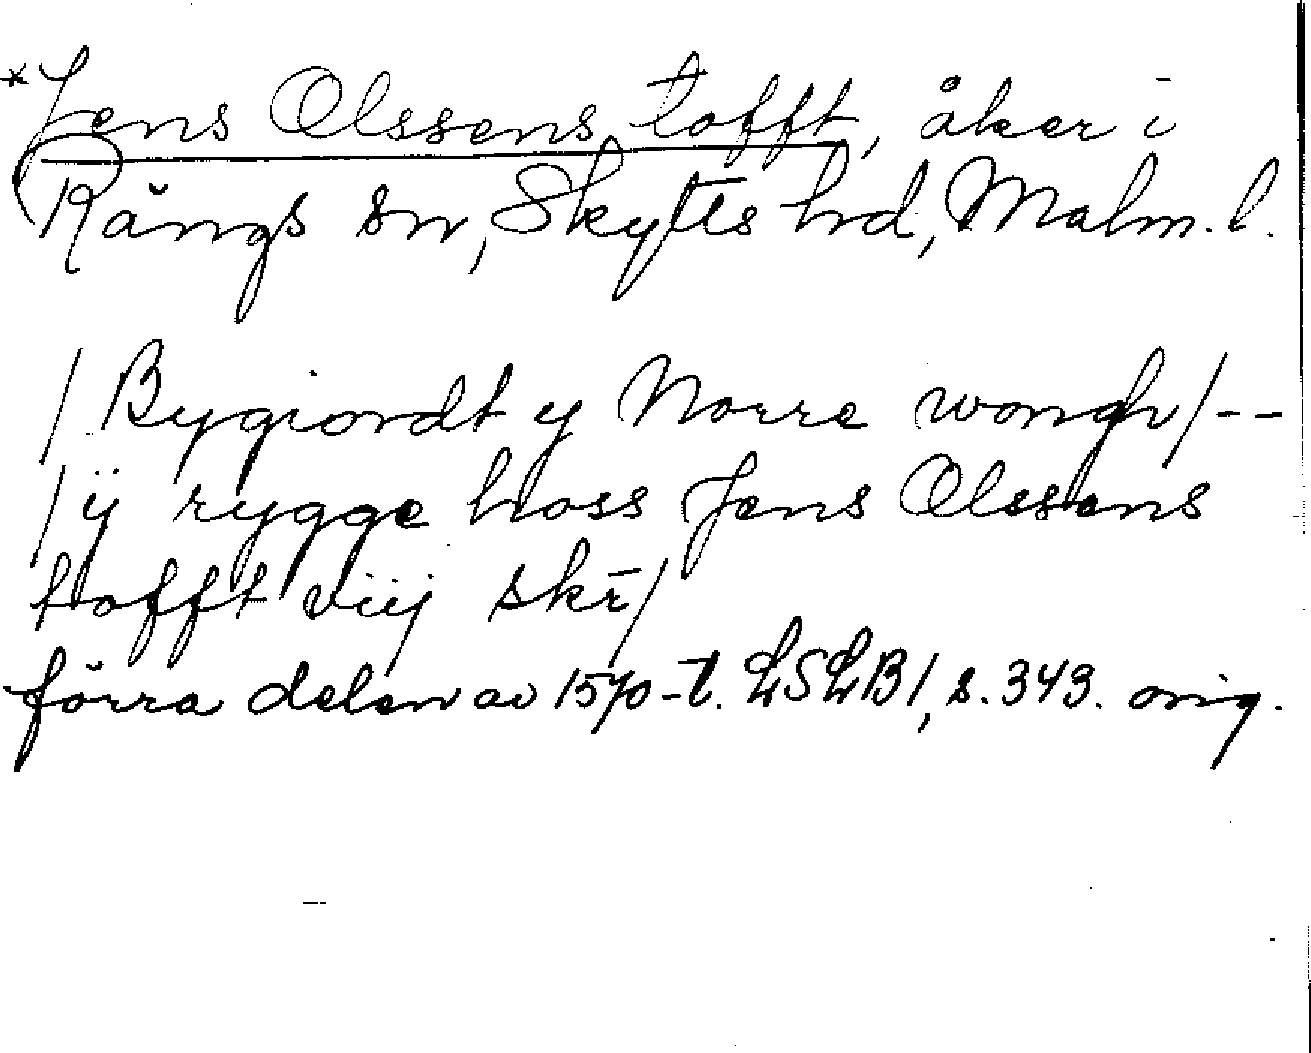 *Jens Olssens tofft, åker i
Rångs sn, Skytts hd, Malm. l.
/ Bygiordt y Norre wongh/--
/ÿ rygge hoss Jens Olssens
tofft viij skr̄/
förra delen av 1570-t. LSLB1, s. 343. orig.